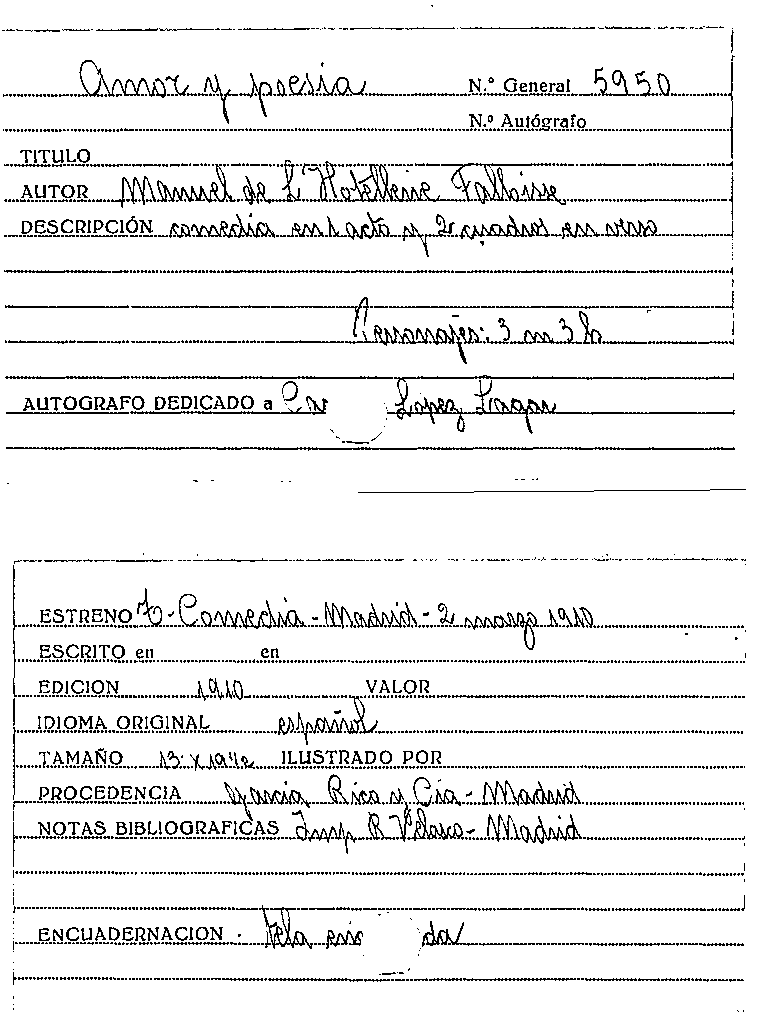 Amor y poesia N.º General 5950
N.º Autógrafo
TITULO
AUTOR Manuel de L'Hotellerie Falloisse
DESCRIPCIÓN comedia en 1 acto y 2 cuadros en verso
Personajes: 3 m 3 h
AUTOGRAFO DEDICADO a Lopez Lagar
ESTRENO T-Comedia - Madrid - 2 marzo 1910
ESCRITO en en
EDICION 1910 VALOR
IDIOMA ORIGINAL español
TAMAÑO 13 x 19 1/2 ILUSTRADO POR
PROCEDENCIA Garcia Rico y Cia - Madrid
NOTAS BIBLIOGRAFICAS Imp R Velasco - Madrid
ENCUADERNACION . tela